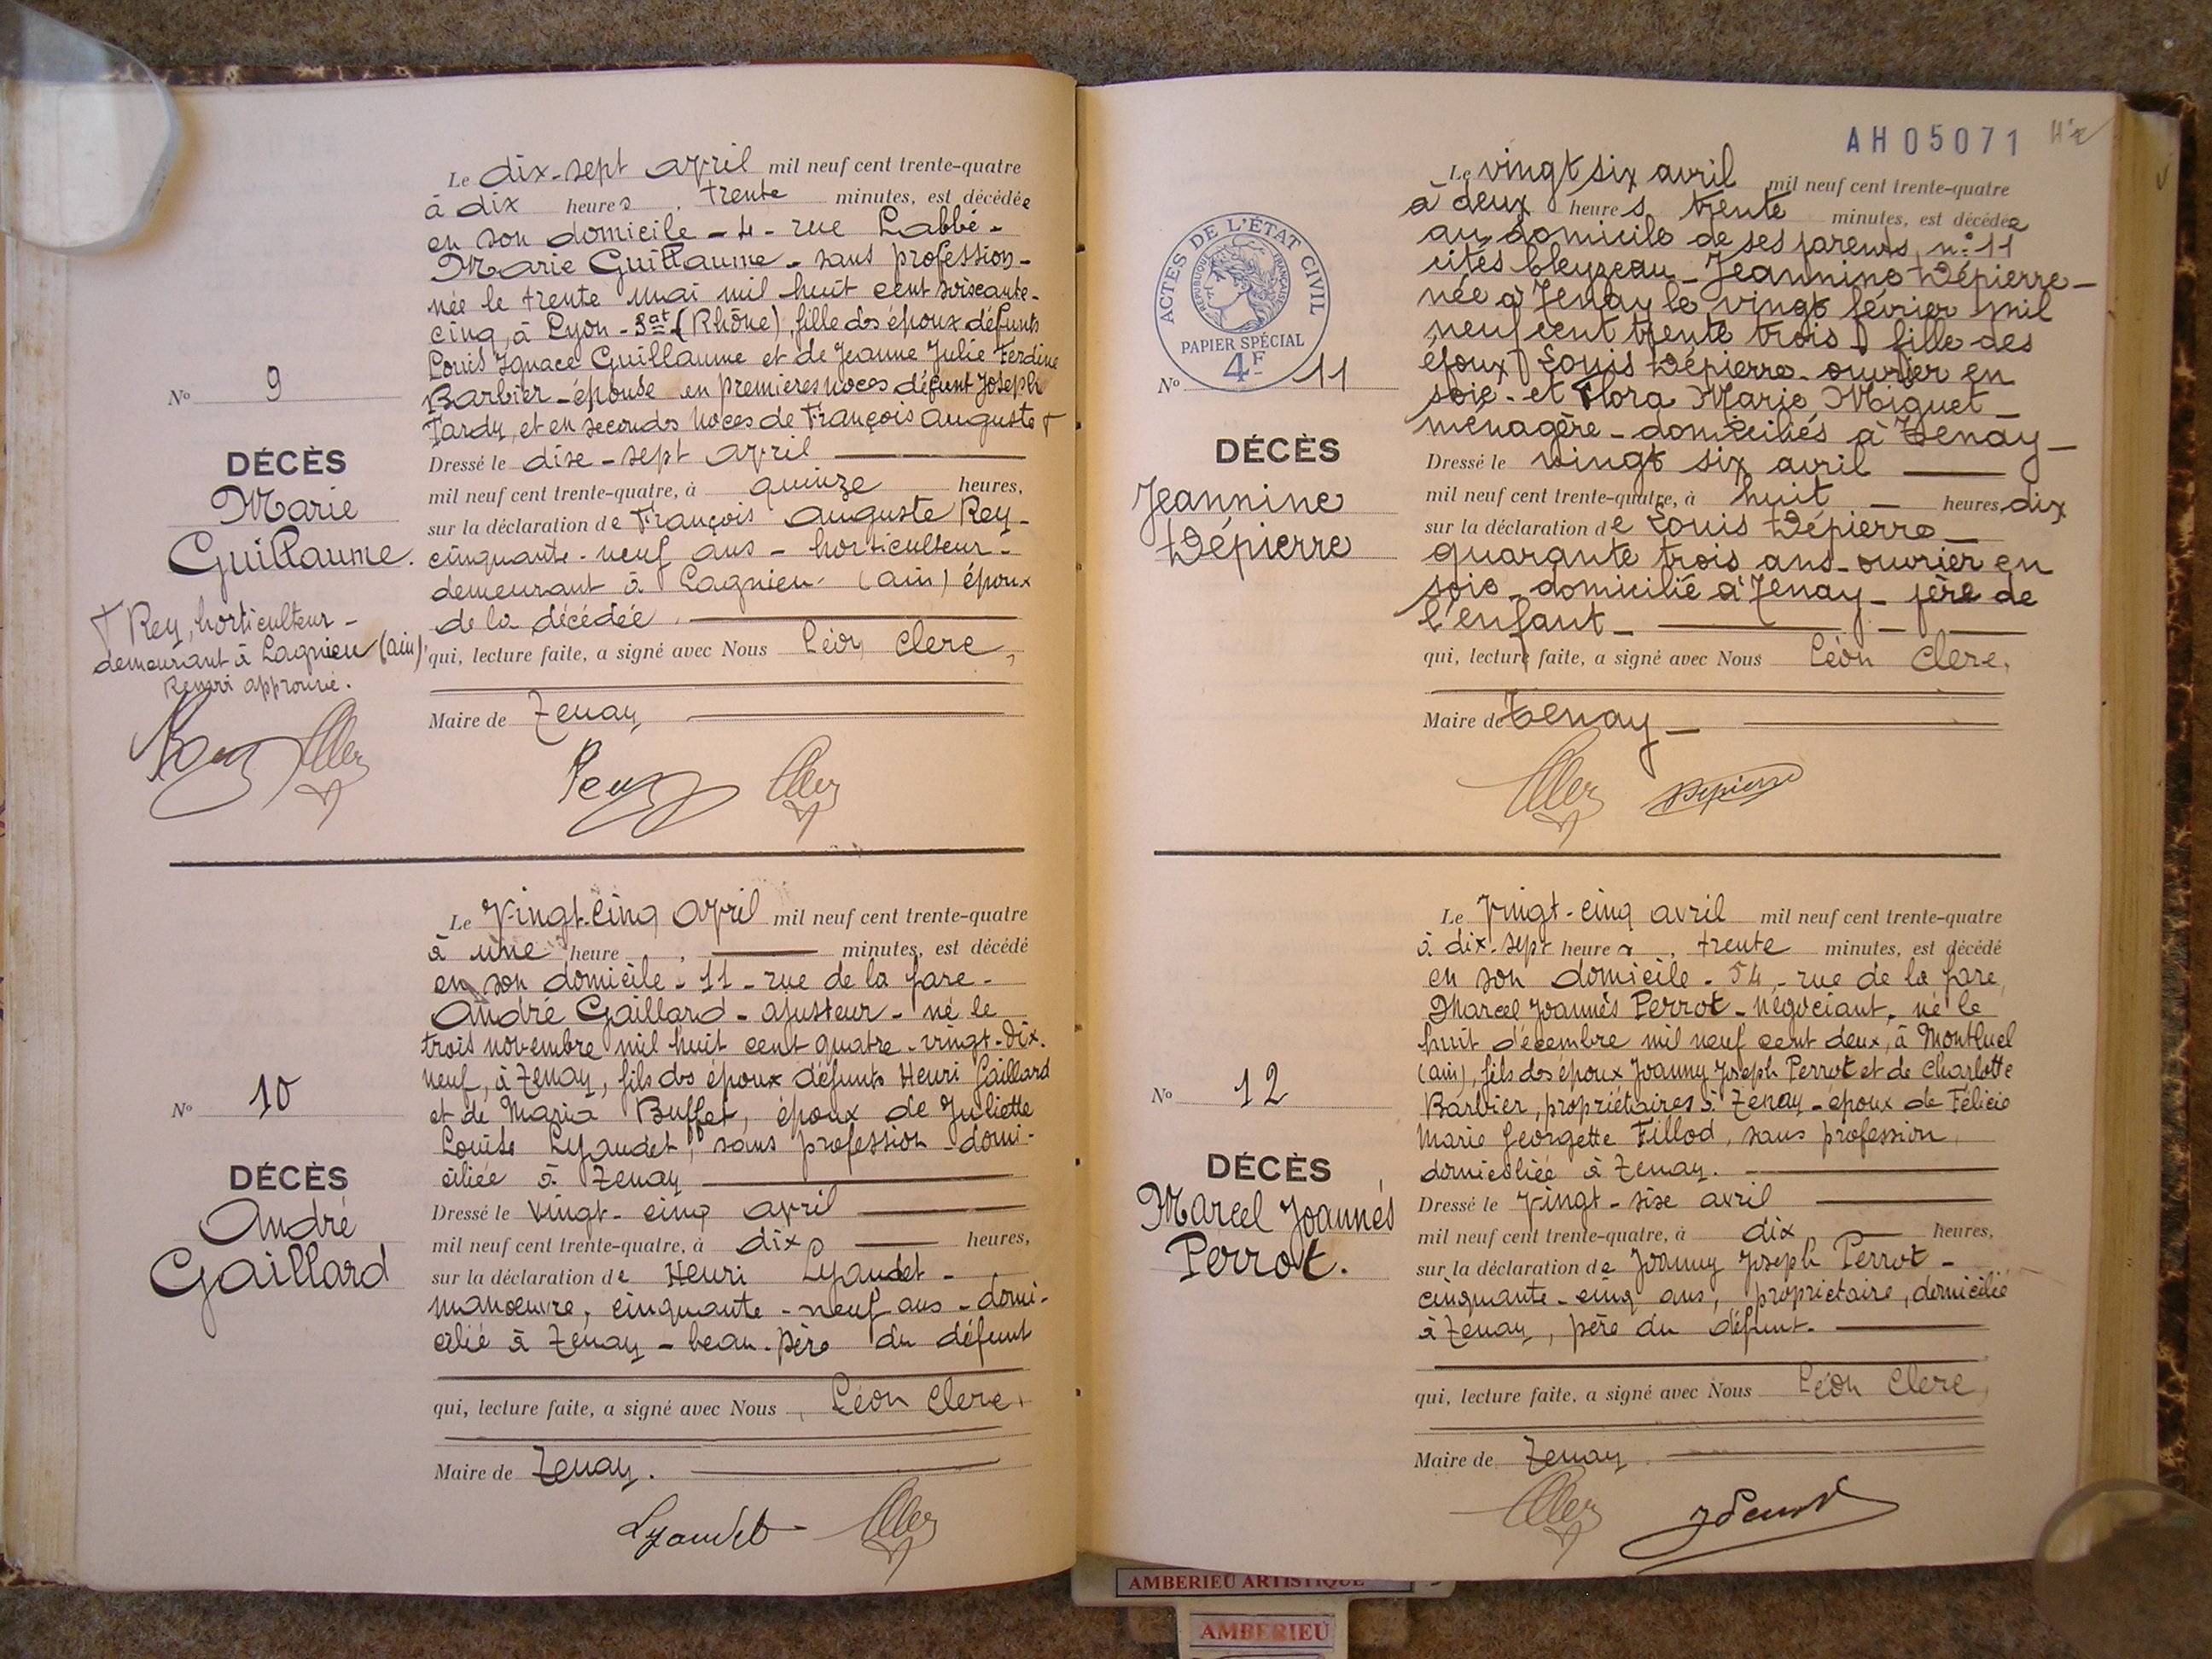 Le dix-sept avril mil neuf cent trente-quatre
à dix heures, trente minutes, est décédée
en son domicile - 4 - rue Labbé -
Marie Guillaume - sans profession -
née le trente mai mil huit cent soixante-
cinq, à Lyon - 3at (Rhône), fille des époux défunts
Louis Ignace Guillaume et de Jeanne Julie Ferdine
Barbier - épouse en premières noces défunt Joseph
Tardy, et en secondes noces de François Auguste †
N° 9
DÉCÈS
Marie
Guillaume.
† Rey, horticulteur -
demeurant à Lagnieu (Ain),
Renvoi approuvé.
Dressé le dix-sept avril
mil neuf cent trente-quatre, à quinze heures,
sur la déclaration de François Auguste Rey -
cinquante-neuf ans - horticulteur -
demeurant à Lagnieu - (Ain) époux
de la décédée.
qui, lecture faite, a signé avec Nous Léon Clerc,
Maire de Tenay
Le Vingt-cinq avril mil neuf cent trente-quatre
à une heure, minutes, est décédé
en son domicile - 11 - rue de la gare -
André Gaillard - ajusteur - né le
trois novembre mil huit cent quatre-vingt-dix-
neuf, à Tenay, fils des époux défunts Henri Gaillard
et de Maria Buffet, époux de Juliette
Louise Lyaudet, sans profession - domi-
ciliée à Tenay
N° 10
DÉCÈS
André
Gaillard
Dressé le vingt-cinq avril
mil neuf cent trente-quatre, à dix heures,
sur la déclaration de Henri Lyaudet -
manoeuvre, cinquante-neuf ans - domi-
cilié à Tenay - beau-père du défunt
qui, lecture faite, a signé avec Nous, Léon Clerc,
Maire de Tenay.
Lyaudet
AH05071
Le vingt six avril mil neuf cent trente-quatre
à deux heures trente minutes, est décédée
au domicile de ses parents, n° 11
cités Cleyzeau - Jeannine Dépierre -
née à Tenay le vingt février mil
neuf cent trente trois, fille des
époux Louis Dépierre - ouvrier en
soie - et Flora Marie Miguet -
ménagère - domiciliés à Tenay -
ACTES DE L'ÉTAT CIVIL
RÉPUBLIQUE FRANÇAISE
PAPIER SPÉCIAL
4F
N° 11
DÉCÈS
Jeannine
Dépierre
Dressé le vingt six avril
mil neuf cent trente-quatre, à huit heures dix
sur la déclaration de Louis Dépierre -
quarante trois ans - ouvrier en
soie - domicilié à Tenay - père de
l'enfant -
qui, lecture faite, a signé avec Nous Léon Clerc,
Maire de Tenay -
Depierre
Le Vingt-cinq avril mil neuf cent trente-quatre
à dix-sept heures, trente minutes, est décédé
en son domicile - 54 - rue de la gare,
Marcel Joannès Perrot - négociant, né le
huit décembre mil neuf cent deux, à Montluel
(Ain), fils des époux Joanny Joseph Perrot et de Charlotte
Barbier, propriétaires à Tenay - époux de Félicie
Marie Georgette Fillod, sans profession,
domiciliée à Tenay.
N° 12
DÉCÈS
Marcel Joannès
Perrot.
Dressé le Vingt-six avril
mil neuf cent trente-quatre, à dix heures,
sur la déclaration de Joanny Joseph Perrot -
cinquante-cinq ans, propriétaire, domicilié
à Tenay, père du défunt.
qui, lecture faite, a signé avec Nous Léon Clerc,
Maire de Tenay.
AMBERIEU ARTISTIQUE
AMBERIEU